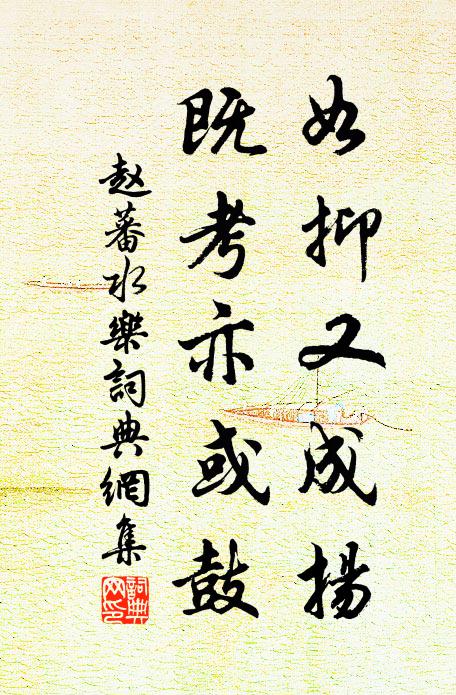 如抑又成揚
既考亦或鼓
赵蕃水樂詞典網集
詞典网印